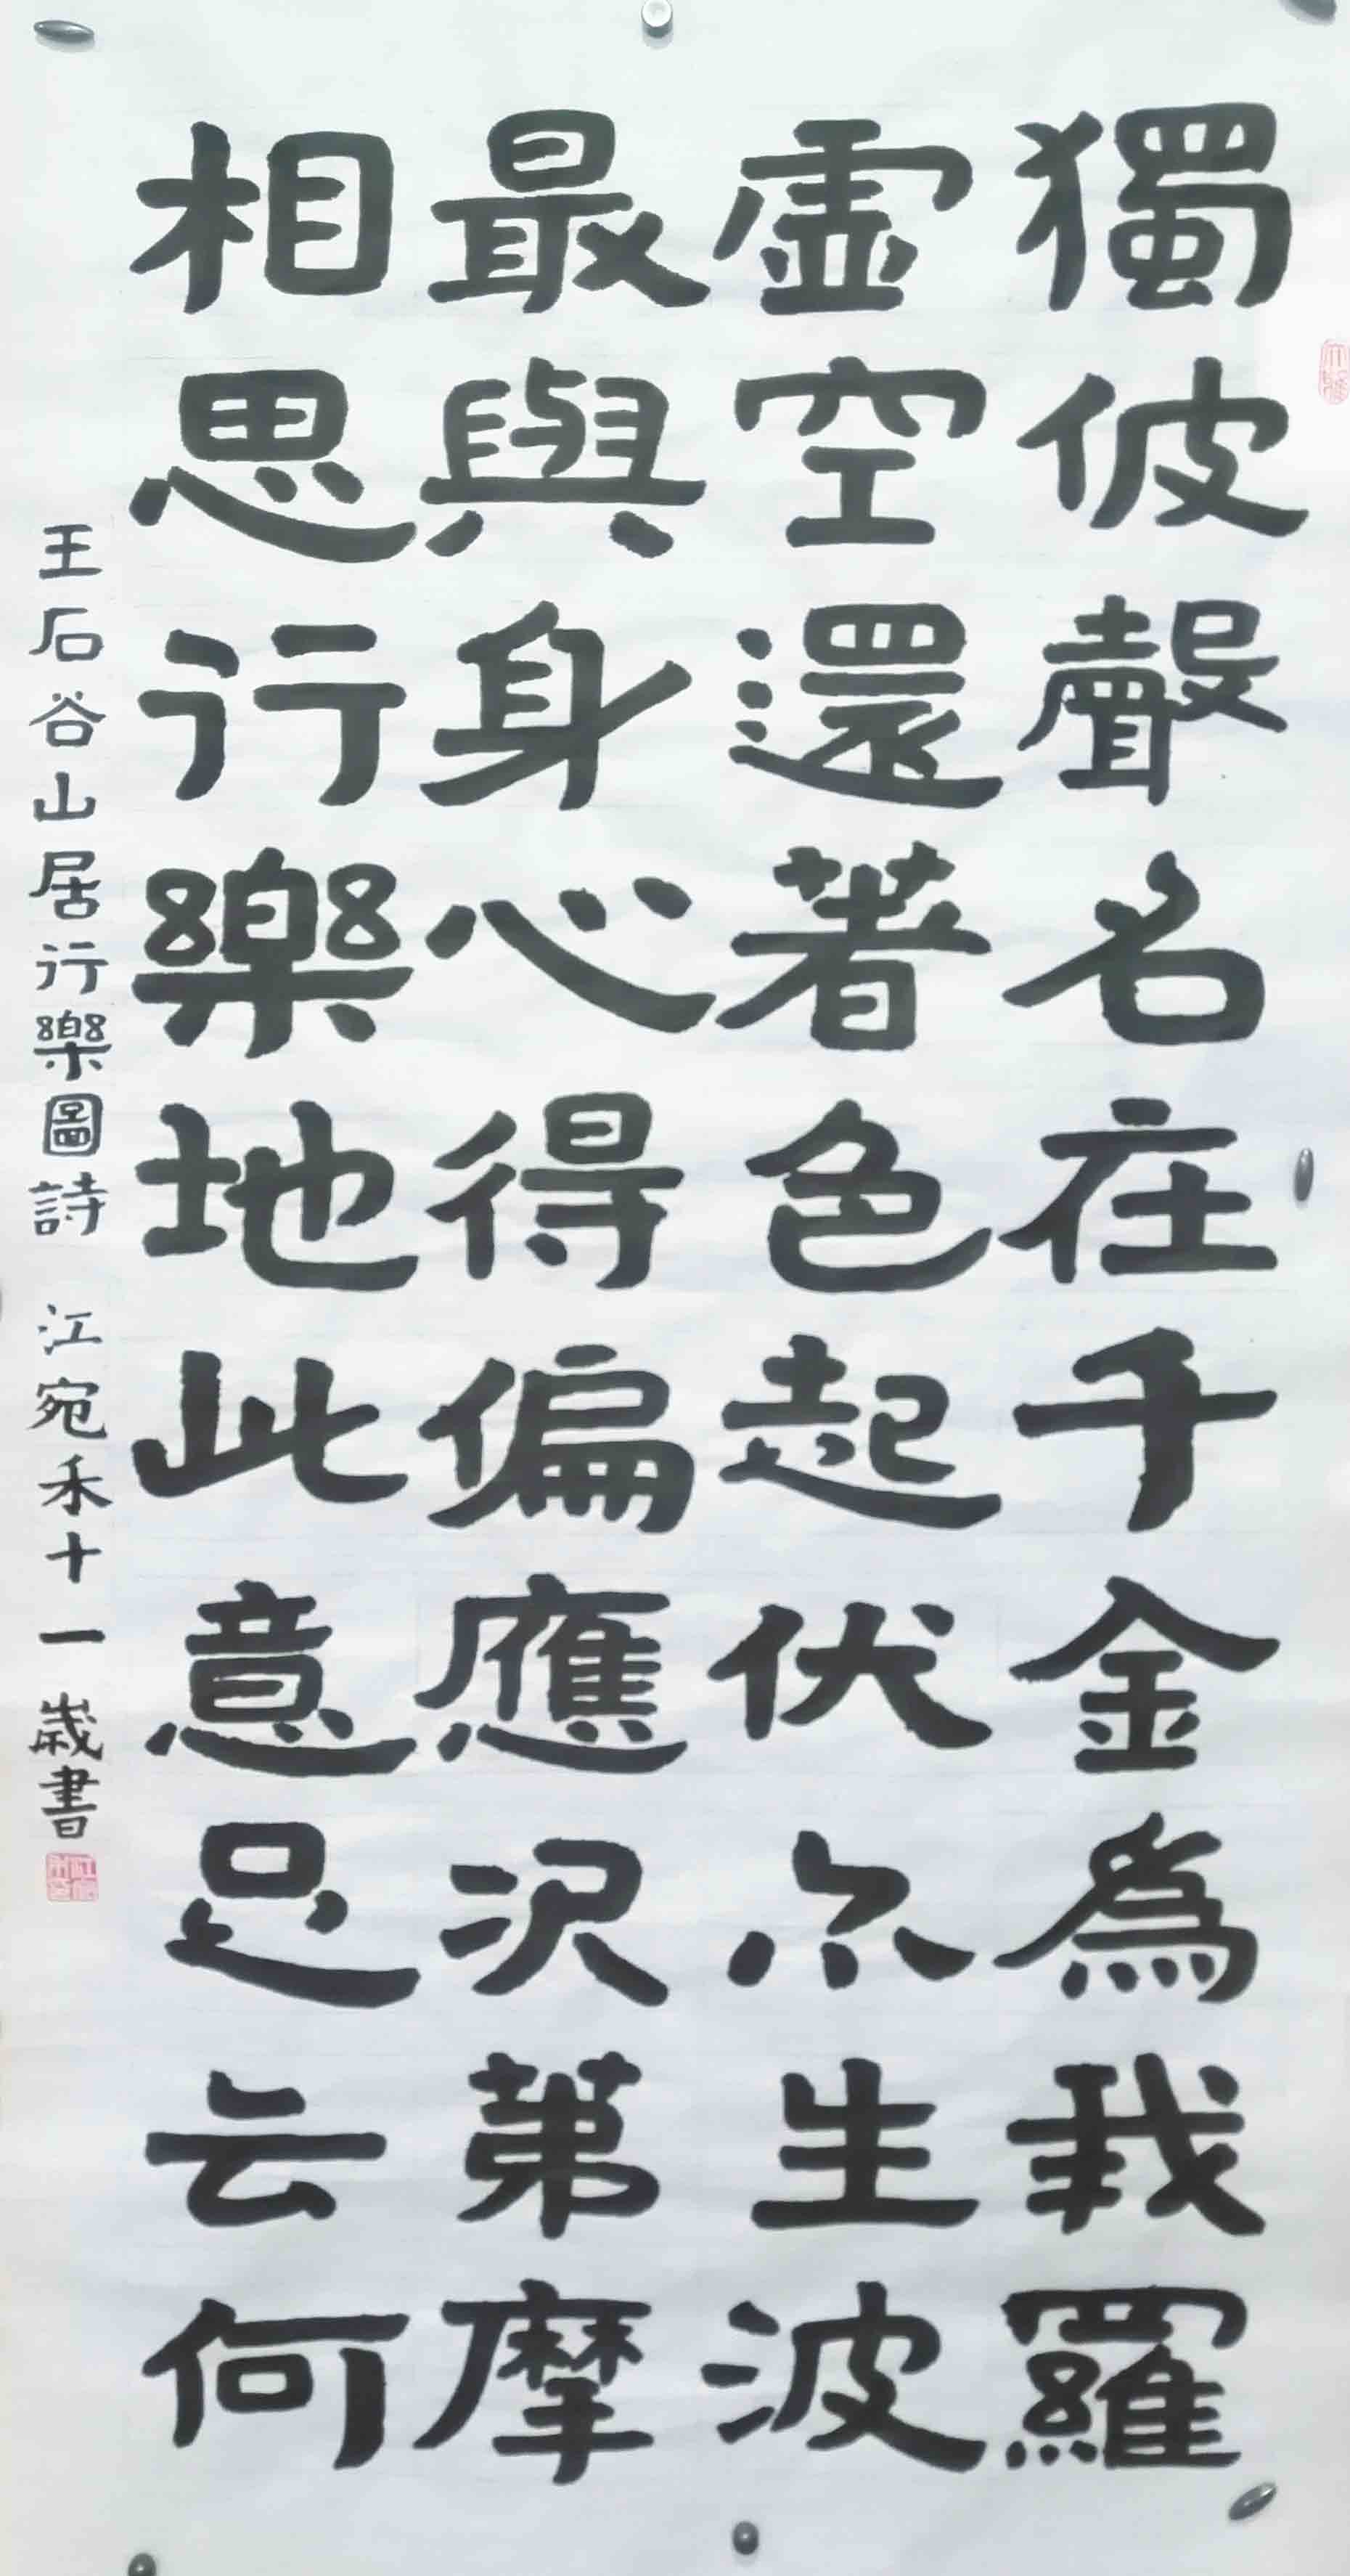 獨彼聲名在千金為我羅
虛空還著色起伏尔生波
最與身心得偏應次第摩
相思行樂地此意足云何
王石谷山居行樂圖詩 江宛禾十一歲書